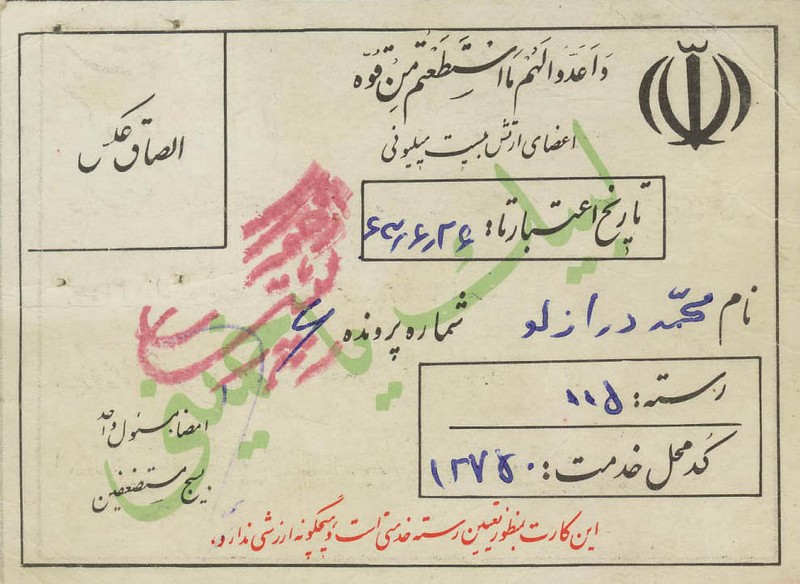 وَاَعِدّوالَهُم مَااسْتَطَعْتُم مِنْ قُوّه
اعضای ارتش بیست میلیونی
الصاق عکس
تاریخ اعتبار تا: ۶۳/۶/۲۶
نام محمد درازلو شماره پرونده
رسته: ۱۱۵
کُد محل خدمت: ۱۲۷۵۰
لبیک یا خمینی
امضاء مسئول واحد
بسیج مستضعفین
این کارت بمنظور تعیین رسته خدمتی است و هیچگونه ارزشی ندارد.